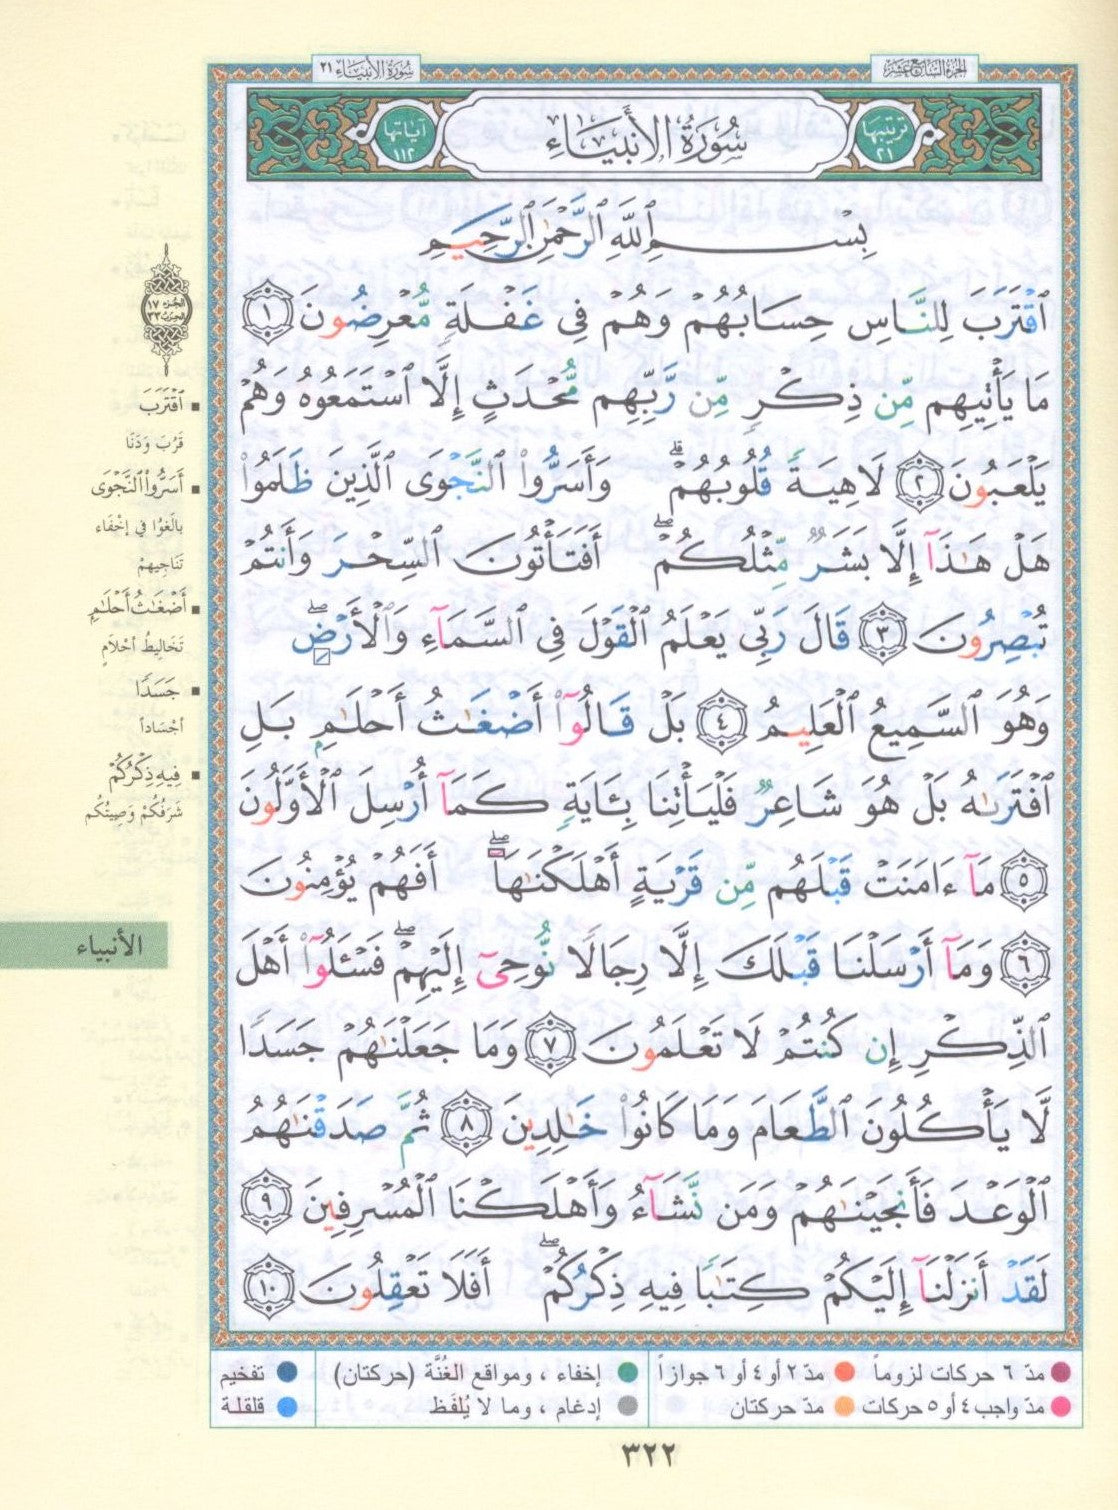 الجزء السابع عشر
سورة الأنبياء ٢١
ترتيبها ٢١
سُورَةُ الأَنبِيَاءِ
آياتها ١١٢
بِسْمِ ٱللَّهِ ٱلرَّحْمَٰنِ ٱلرَّحِيمِ
ٱقْتَرَبَ لِلنَّاسِ حِسَابُهُمْ وَهُمْ فِى غَفْلَةٍ مُّعْرِضُونَ ١
مَا يَأْتِيهِم مِّن ذِكْرٍ مِّن رَّبِّهِم مُّحْدَثٍ إِلَّا ٱسْتَمَعُوهُ وَهُمْ
يَلْعَبُونَ ٢ لَاهِيَةً قُلُوبُهُمْ ۗ وَأَسَرُّوا۟ ٱلنَّجْوَى ٱلَّذِينَ ظَلَمُوا۟
هَلْ هَٰذَآ إِلَّا بَشَرٌ مِّثْلُكُمْ ۖ أَفَتَأْتُونَ ٱلسِّحْرَ وَأَنتُمْ
تُبْصِرُونَ ٣ قَالَ رَبِّى يَعْلَمُ ٱلْقَوْلَ فِى ٱلسَّمَآءِ وَٱلْأَرْضِ ۖ
وَهُوَ ٱلسَّمِيعُ ٱلْعَلِيمُ ٤ بَلْ قَالُوٓا۟ أَضْغَٰثُ أَحْلَٰمٍ بَلِ
ٱفْتَرَىٰهُ بَلْ هُوَ شَاعِرٌ فَلْيَأْتِنَا بِـَٔايَةٍ كَمَآ أُرْسِلَ ٱلْأَوَّلُونَ
٥ مَآ ءَامَنَتْ قَبْلَهُم مِّن قَرْيَةٍ أَهْلَكْنَٰهَآ ۖ أَفَهُمْ يُؤْمِنُونَ
٦ وَمَآ أَرْسَلْنَا قَبْلَكَ إِلَّا رِجَالًا نُّوحِىٓ إِلَيْهِمْ ۖ فَسْـَٔلُوٓا۟ أَهْلَ
ٱلذِّكْرِ إِن كُنتُمْ لَا تَعْلَمُونَ ٧ وَمَا جَعَلْنَٰهُمْ جَسَدًا
لَّا يَأْكُلُونَ ٱلطَّعَامَ وَمَا كَانُوا۟ خَٰلِدِينَ ٨ ثُمَّ صَدَقْنَٰهُمُ
ٱلْوَعْدَ فَأَنجَيْنَٰهُمْ وَمَن نَّشَآءُ وَأَهْلَكْنَا ٱلْمُسْرِفِينَ ٩
لَقَدْ أَنزَلْنَآ إِلَيْكُمْ كِتَٰبًا فِيهِ ذِكْرُكُمْ ۖ أَفَلَا تَعْقِلُونَ ١٠
الجزء ١٧
الحزب ٣٣
▪ ٱقْتَرَبَ
قَرُبَ وَدَنَا
▪ أَسَرُّوا۟ ٱلنَّجْوَى
بالَغوُا في إخْفَاء
تَنَاجِيهمْ
▪ أَضْغَٰثُ أَحْلَٰمٍ
تَخَالِيطُ أحْلاَمٍ
▪ جَسَدًا
أجْسَاداً
▪ فِيهِ ذِكْرُكُمْ
شَرَفُكُمْ وَصِيتُكُم
الأنبياء
مدّ ٦ حركات لزوماً
مدّ ٢ أو ٤ أو ٦ جوازاً
إخفاء ، ومواقع الغُنَّة (حركتان)
تفخيم
مدّ واجب ٤ أو ٥ حركات
مدّ حركتان
إدغام ، وما لا يُلفَظ
قلقلة
٣٢٢